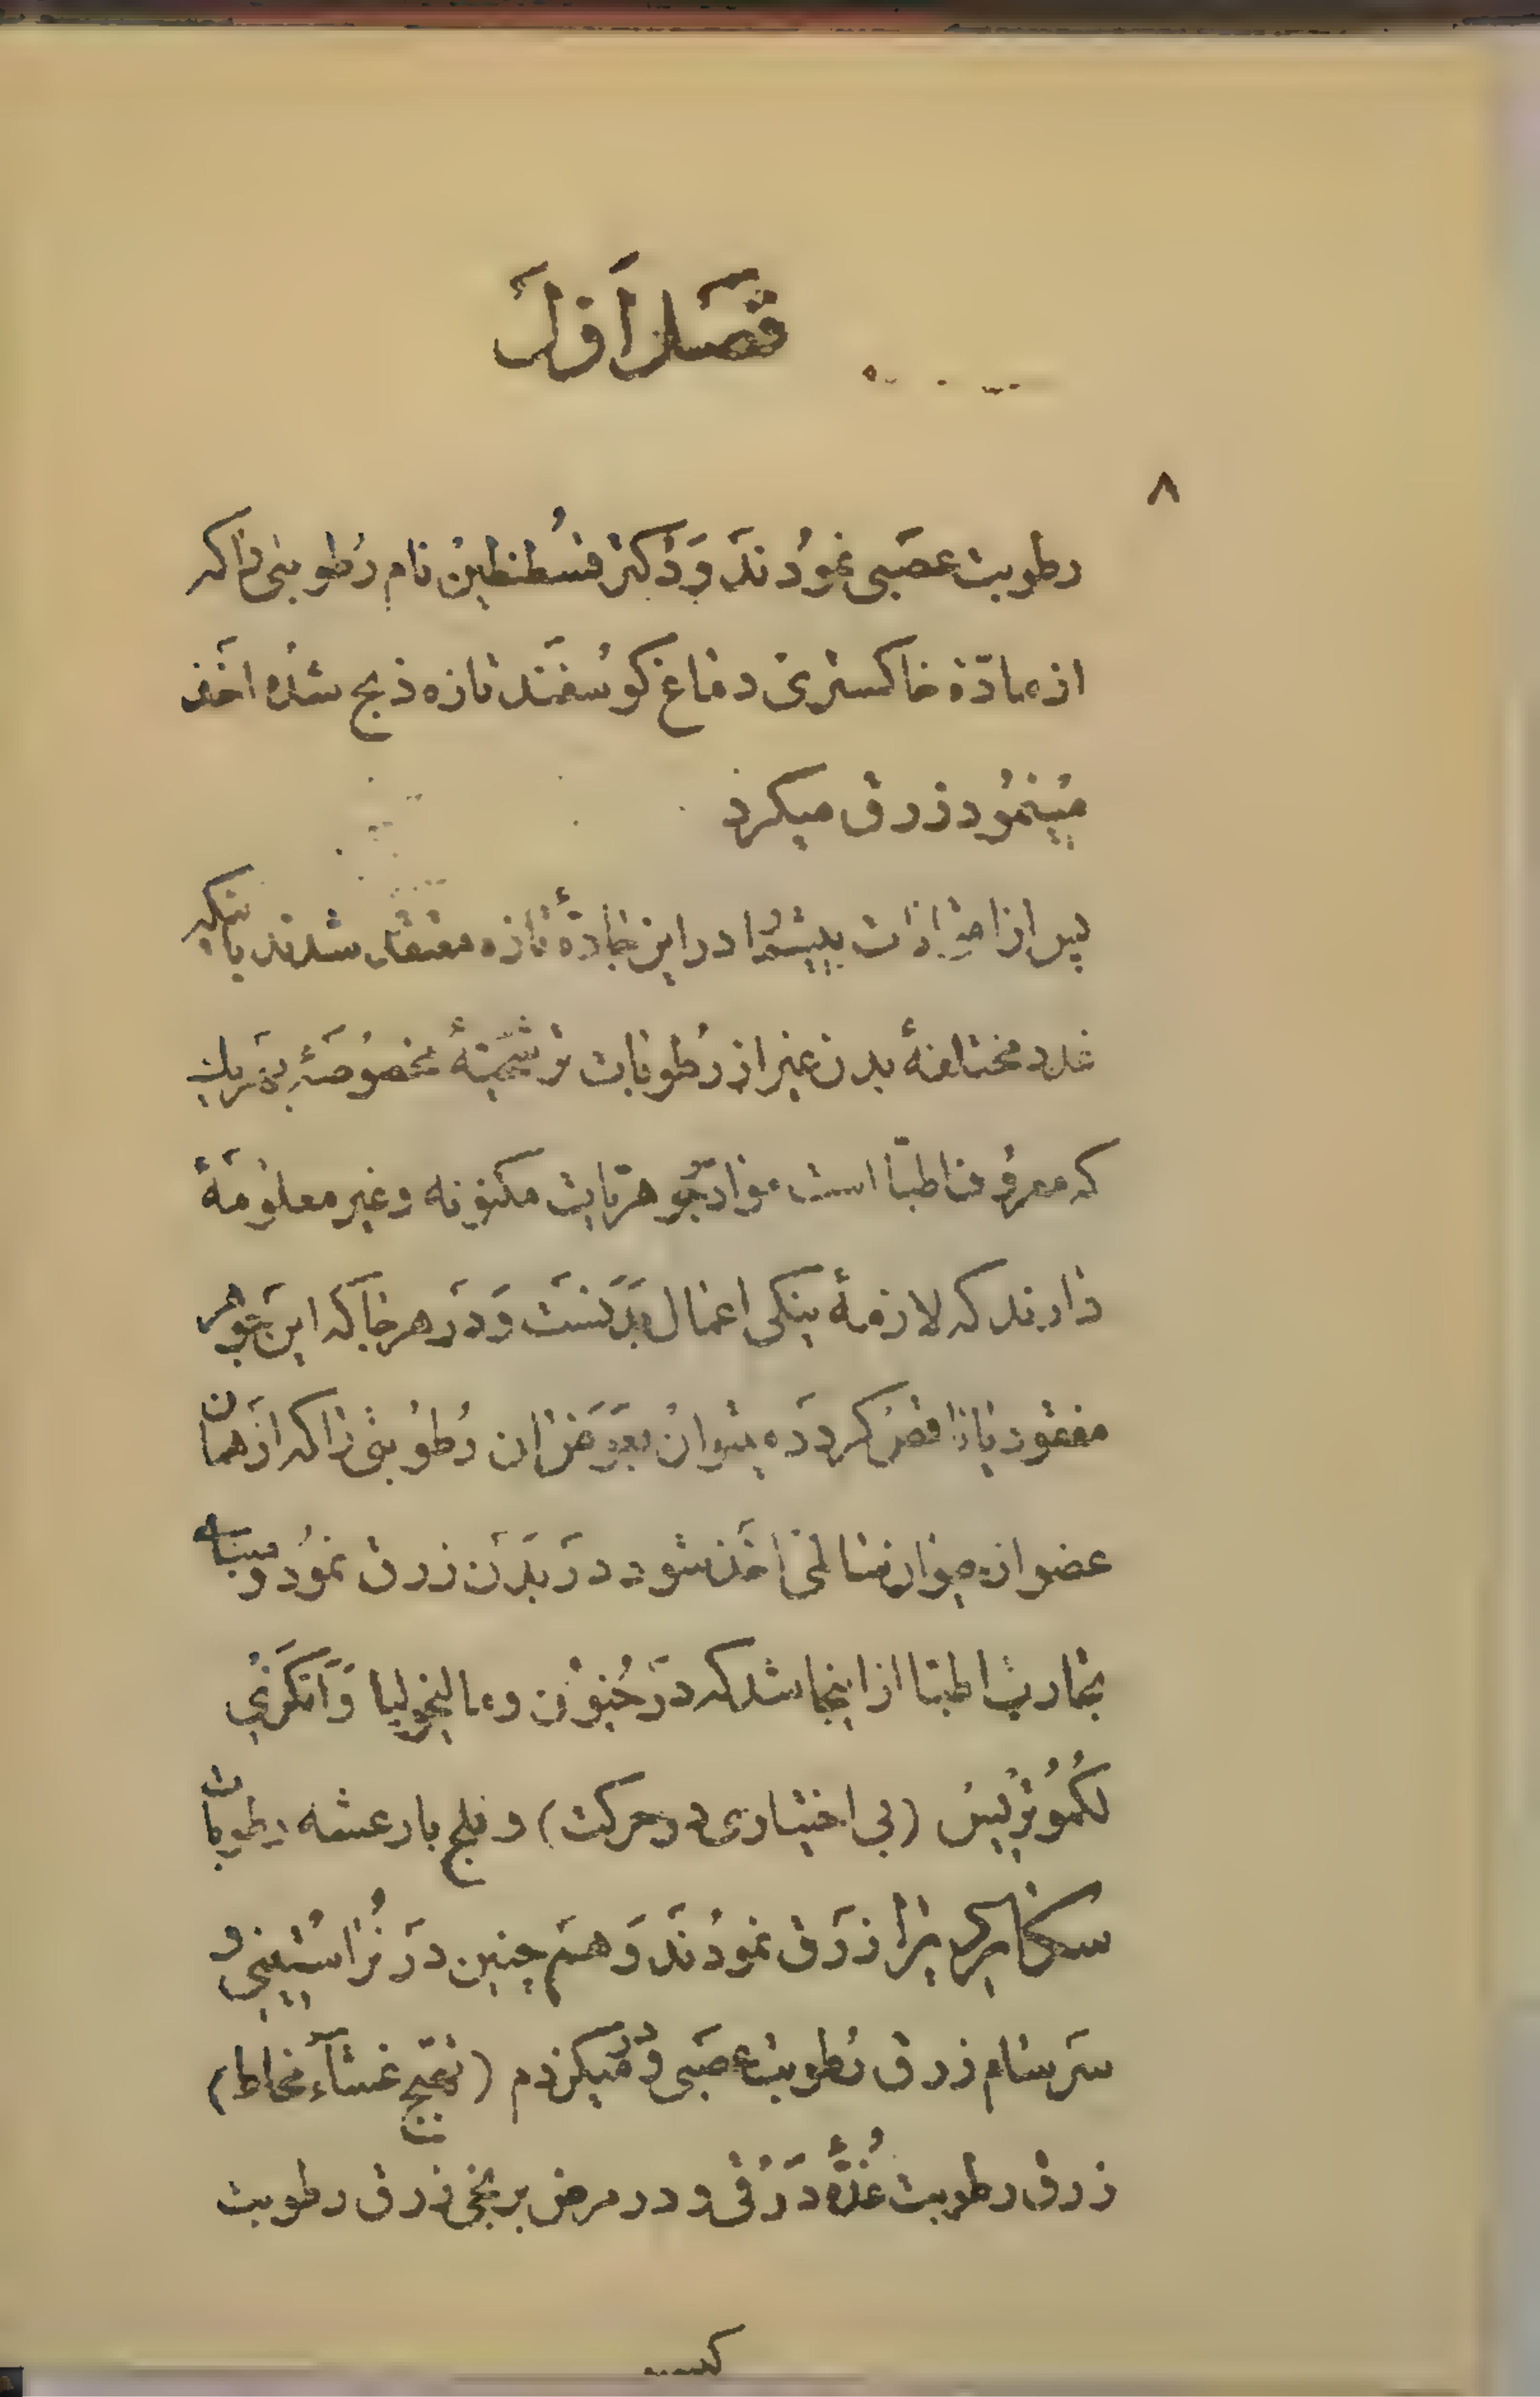 فصل اول
۸
رطوبت عصبی نمودند و دکتر قسطنطین نام رطوبتی را که
از مادّهٔ خاکستری دماغ کوسفند تازه ذبح شده اخذ
مینمود زرق میکرد
پس از اختبارات بیشمار در این جادهٔ تازه معتقد شدند باینکه
غدد مختلفهٔ بدن غیر از رطوبات ترشحیّهٔ مخصوصهٔ بهریك
که معروف اطبّا است مواد جوهریات مکنونه و غیر معلومهٔ
دارند که لازمهٔ نیکی اعمال بدنست و در هر جا که این جوهر
مفقود یا ناقص کردد میتوان بعوض ان رطوبتی را که از همان
عضو از حیوان سالمی اخذ شود در بدن زرق نمود و مبنای
تجاریب اطبّا از اینجا شد که در جنون و مالیخولیا و
(بی اختیاری در حرکت) و فلج با رعشه رطوبات
زرق نمودند و هم چنین در
سرسام زرق رطوبت عصبی و در میکزدم (تهیّج غشاء مخاطی)
زرق رطوبت غدّهٔ درقی و در مرض برنجی زرق رطوبت